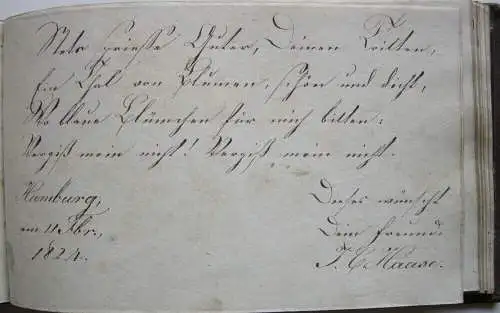 Stets sprieße Guter, Deinen Tritten,
Ein Thal von Blumen, schön und dicht,
Wo blaue Blümchen für mich bitten:
Vergiß mein nicht! Vergiß mein nicht.
Hamburg,
am 11 Fbr.,
1824.
Dieses wünscht
Dein Freund:
J. C. Haase.